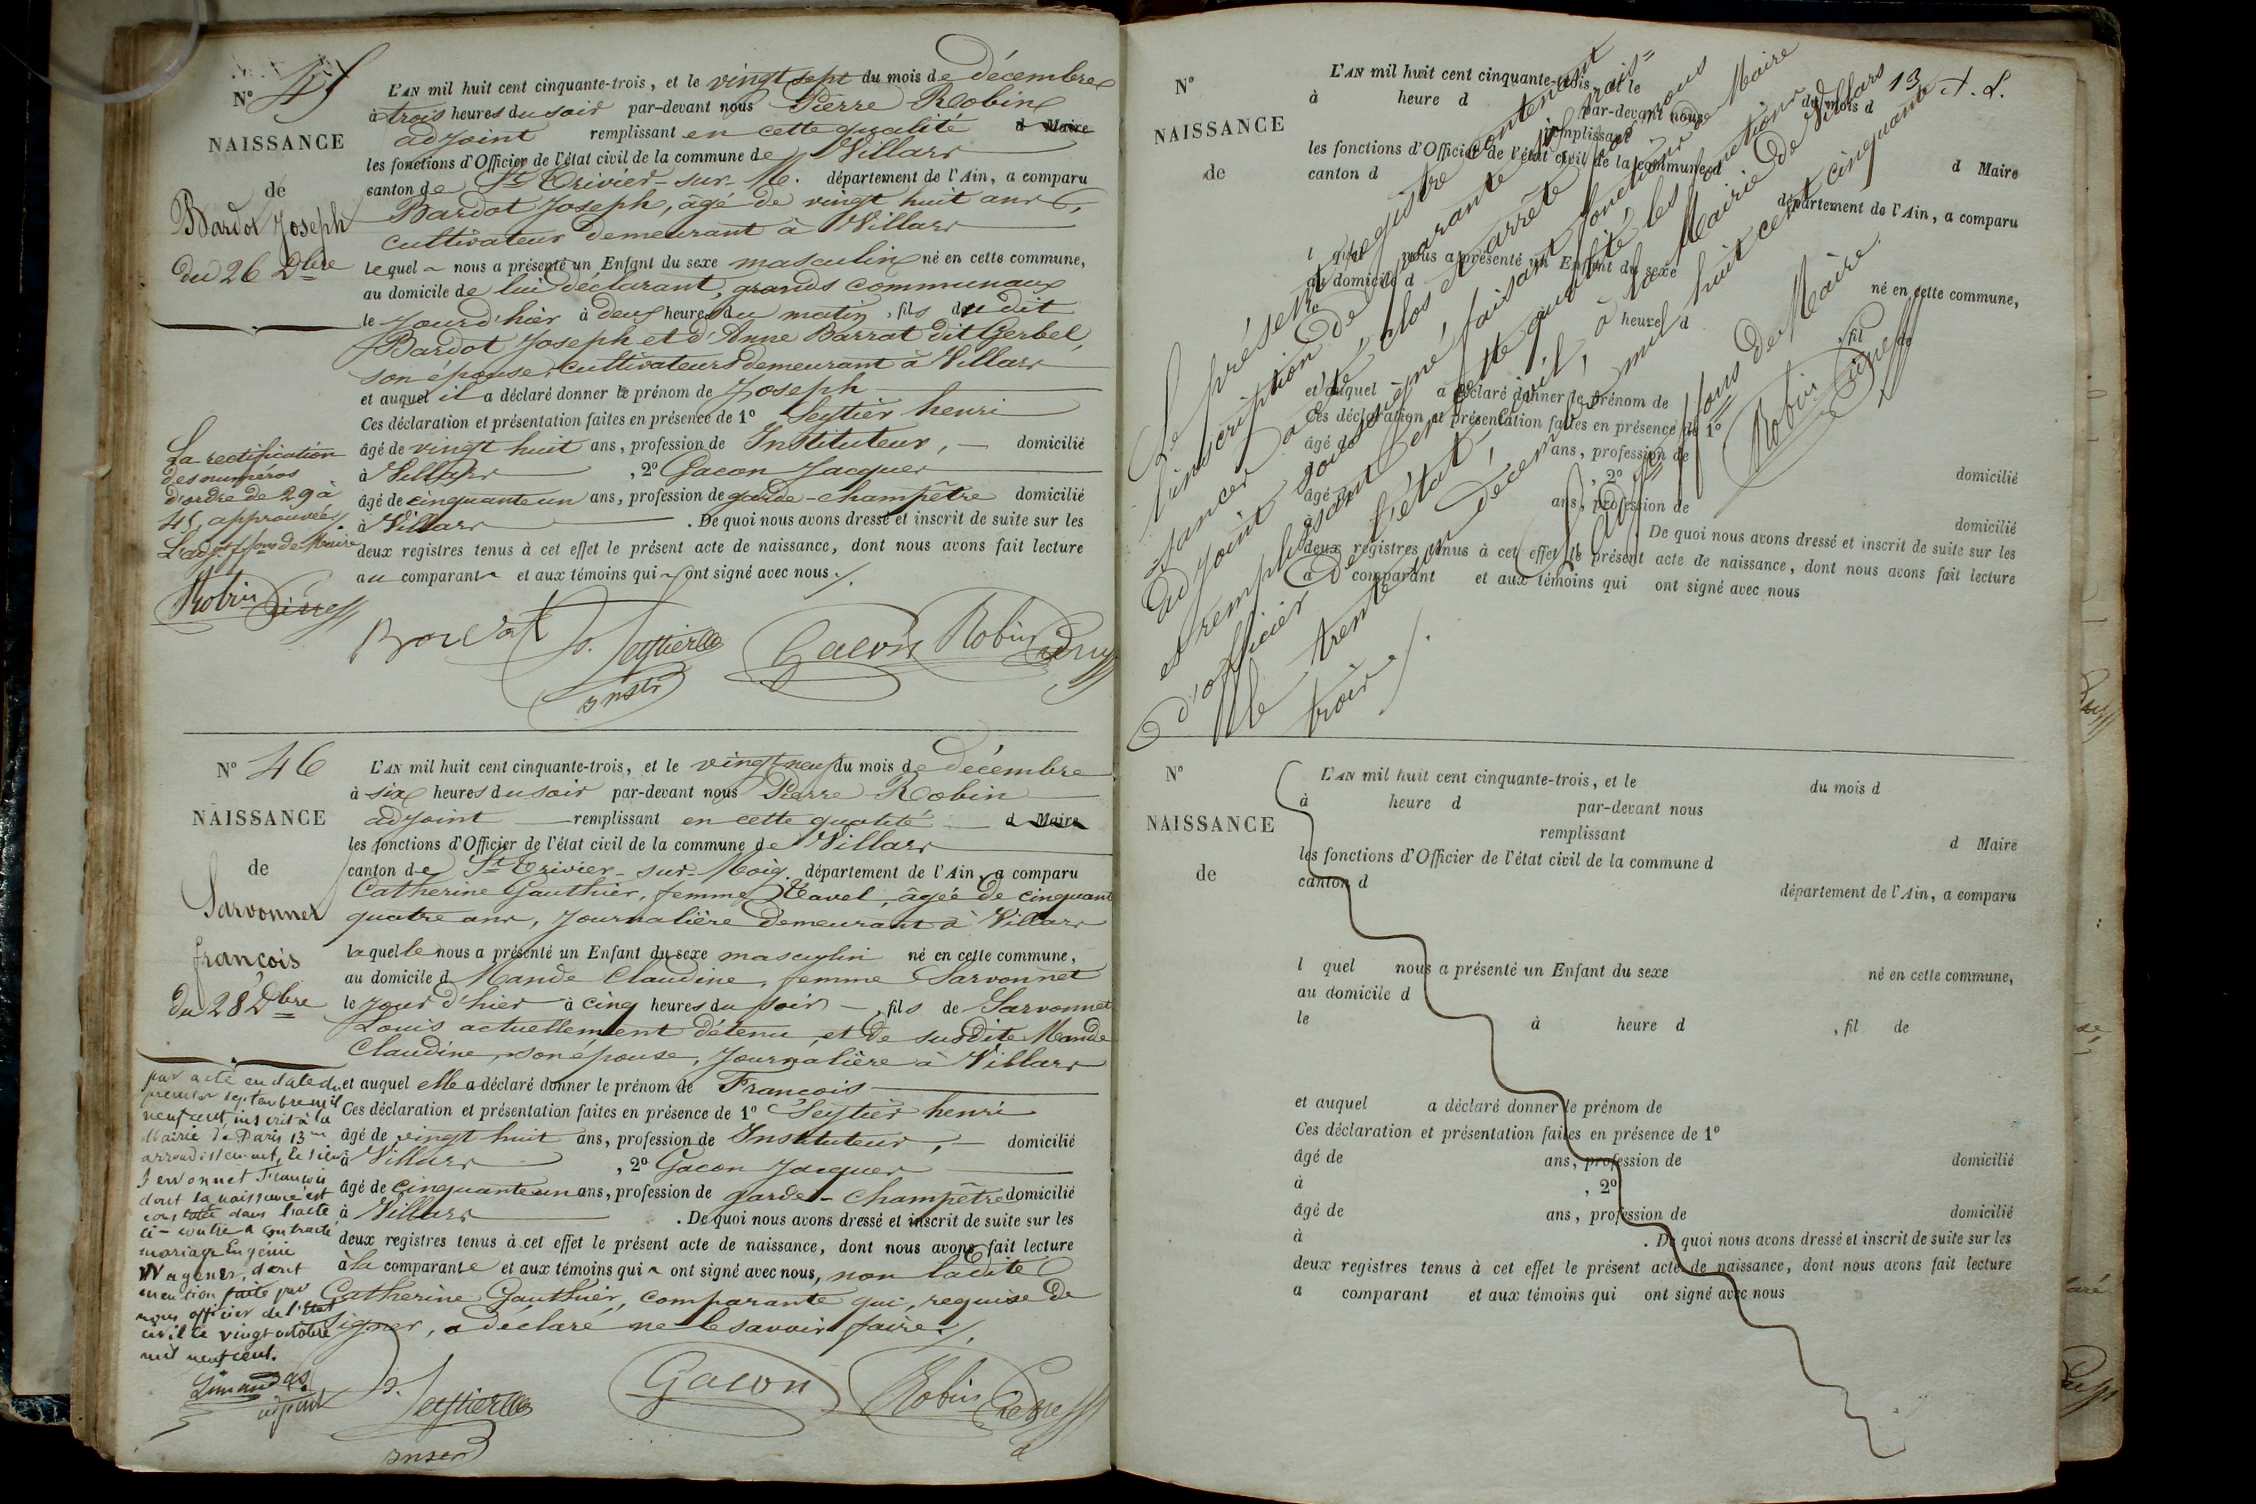 N° 45
NAISSANCE
de
Bardot Joseph
du 26 Dbre
L'AN mil huit cent cinquante-trois, et le vingt sept du mois de décembre
à trois heures du soir par-devant nous Pierre Robin
adjoint remplissant en cette qualité d Maire
les fonctions d'Officier de l'état civil de la commune de Villars
canton de St Trivier-sur-M. département de l'Ain, a comparu
Bardot Joseph, âgé de vingt huit ans,
cultivateur demeurant à Villars
lequel nous a présenté un Enfant du sexe masculin né en cette commune,
au domicile de lui déclarant, grands communaux
le jour d'hier à deux heures du matin, fils du dit
Bardot Joseph et d'Anne Barrat dit Gerbel,
son épouse, cultivateurs demeurant à Villars
et auquel il a déclaré donner le prénom de Joseph
Ces déclaration et présentation faites en présence de 1° Seytier henri
âgé de vingt huit ans, profession de Instituteur, domicilié
à Villars, 2° Gacon Jacques
âgé de cinquante un ans, profession de garde-champêtre domicilié
à Villars. De quoi nous avons dressé et inscrit de suite sur les
deux registres tenus à cet effet le présent acte de naissance, dont nous avons fait lecture
au comparant et aux témoins qui ont signé avec nous.
La rectification
des numéros
d'ordre de 29 à
45, approuvée.
L'adjt ffons de Maire
Robin Pierre
Seytier
Gacon
Robin Pierre
N° 46
NAISSANCE
de
Sarvonnet
françois
du 28 Dbre
L'AN mil huit cent cinquante-trois, et le vingt neuf du mois de décembre
à six heures du soir par-devant nous Pierre Robin
adjoint remplissant en cette qualité d Maire
les fonctions d'Officier de l'état civil de la commune de Villars
canton de St Trivier-sur-Moig. département de l'Ain, a comparu
Catherine Gauthier, femme Ravel, âgée de cinquant
quatre ans, journalière demeurant à Villars
laquelle nous a présenté un Enfant du sexe masculin né en cette commune,
au domicile d Mande Claudine, femme Sarvonnet
le jour d'hier à cinq heures du soir, fils de Sarvonnet
Louis actuellement détenu, et de susdite Mande
Claudine, son épouse, journalière à Villars
et auquel elle a déclaré donner le prénom de François
Ces déclaration et présentation faites en présence de 1° Seytier henri
âgé de vingt huit ans, profession de Instituteur, domicilié
à Villars, 2° Gacon Jacques
âgé de cinquante un ans, profession de garde-champêtre domicilié
à Villars. De quoi nous avons dressé et inscrit de suite sur les
deux registres tenus à cet effet le présent acte de naissance, dont nous avons fait lecture
à la comparante et aux témoins qui ont signé avec nous, non ladite
Catherine Gauthier, comparante qui, requise de
signer, a déclaré ne le savoir faire.
par acte en date du
premier septembre mil
neuf cent, inscrit à la
Mairie de Paris 13me
arrondissement, le sieur
Servonnet François
dont la naissance est
constatée dans l'acte
ci-contre a contracté
mariage Eugénie
Wagener, dont
mention faite par
nous officier de l'état
civil le vingt octobre
mil neuf cent.
adjoint
Seytier
Gacon
Robin Pierre
13 A. L.
N°
NAISSANCE
de
L'AN mil huit cent cinquante-trois, et le du mois d
à heure d par-devant nous
remplissant d Maire
les fonctions d'Officier de l'état civil de la commune d
canton d département de l'Ain, a comparu
l quel nous a présenté un Enfant du sexe né en cette commune,
au domicile d
le à heure d, fil de
et auquel a déclaré donner le prénom de
Ces déclaration et présentation faites en présence de 1°
âgé de ans, profession de domicilié
à, 2°
âgé de ans, profession de domicilié
à. De quoi nous avons dressé et inscrit de suite sur les
deux registres tenus à cet effet le présent acte de naissance, dont nous avons fait lecture
a comparant et aux témoins qui ont signé avec nous
Le présent registre contenant
l'inscription de quarante six nais-
sances a été clos et arrêté par nous
adjoint soussigné faisant fonctions de Maire
et remplissant en cette qualité les fonctions
d'officier de l'état civil, à la Mairie de Villars
le trente un décembre mil huit cent cinquante
trois.
L'adjt ffons de Maire
Robin Pierre
N°
NAISSANCE
de
L'AN mil huit cent cinquante-trois, et le du mois d
à heure d par-devant nous
remplissant d Maire
les fonctions d'Officier de l'état civil de la commune d
canton d département de l'Ain, a comparu
l quel nous a présenté un Enfant du sexe né en cette commune,
au domicile d
le à heure d, fil de
et auquel a déclaré donner le prénom de
Ces déclaration et présentation faites en présence de 1°
âgé de ans, profession de domicilié
à, 2°
âgé de ans, profession de domicilié
à. De quoi nous avons dressé et inscrit de suite sur les
deux registres tenus à cet effet le présent acte de naissance, dont nous avons fait lecture
a comparant et aux témoins qui ont signé avec nous